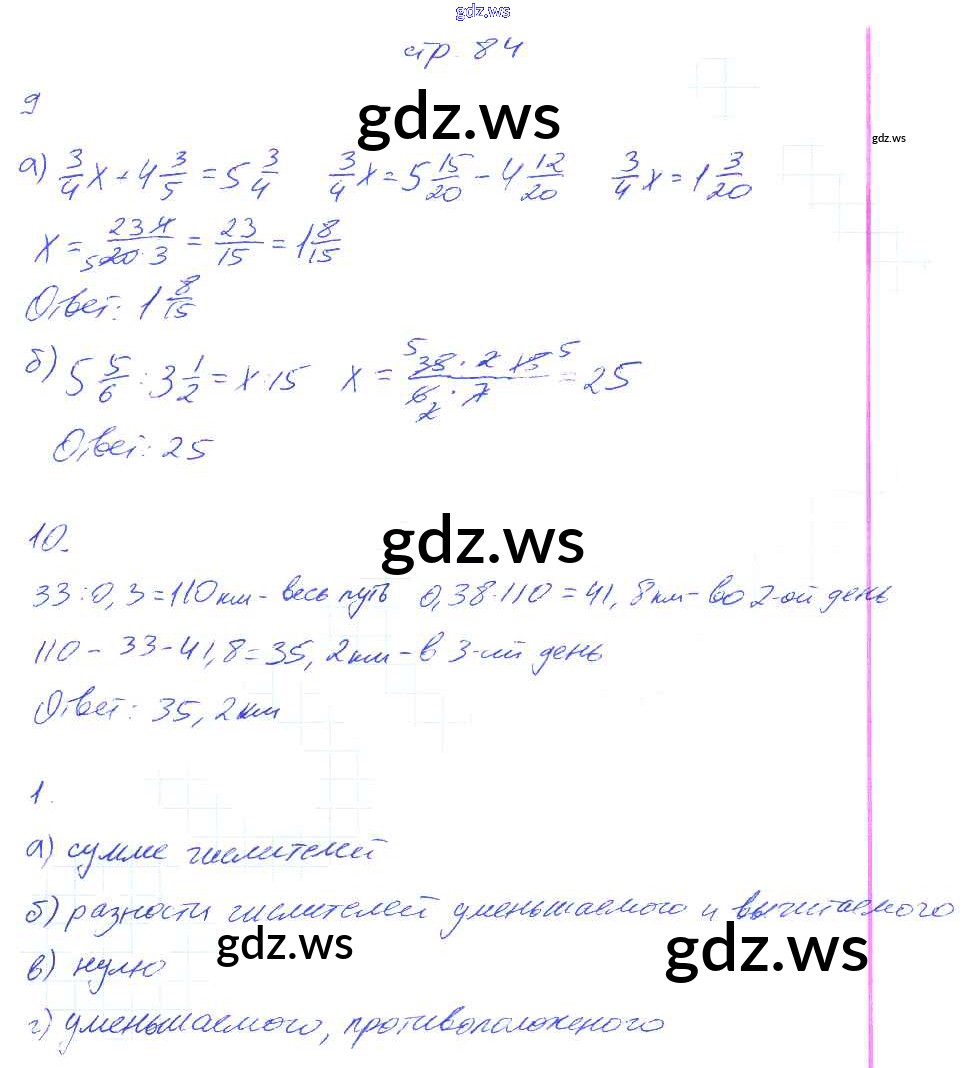 gdz.ws
стр. 84
9
gdz.ws
gdz.ws
а) 3/4 x + 4 3/5 = 5 3/4   3/4 x = 5 15/20 - 4 12/20   3/4 x = 1 3/20
x = 23·4/20·3 5 = 23/15 = 1 8/15
Ответ: 1 8/15
б) 5 5/6 : 3 1/2 = x : 15   x = 5 35 · 2 · 15 5 / 6 2 · 7 = 25
Ответ: 25
gdz.ws
10.
33 : 0,3 = 110 км - весь путь   0,38 · 110 = 41,8 км - во 2-ой день
110 - 33 - 41,8 = 35,2 км - в 3-ий день
Ответ: 35,2 км
1.
а) сумме числителей
б) разности числителей уменьшаемого и вычитаемого
gdz.ws
gdz.ws
в) нулю
г) уменьшаемого, противоположеного